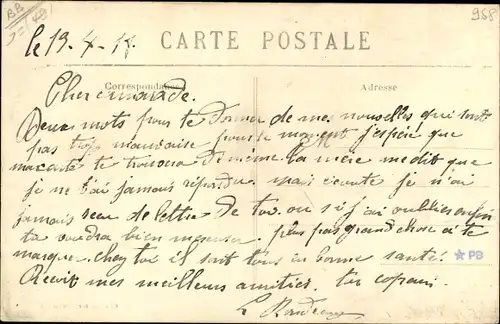 968
le 13-4-15
CARTE POSTALE
Correspondance
Adresse
Cher
Deux mots pour te donner de mes nouvelles qui sont
pas trop mauvaise pour le moment j'espère que
ma carte te trouvera de même ta mère me dit que
je ne t'ai jamais répondu mais écoute je n'ai
jamais reçu de lettre de toi ou si j'ai oublier enfin
tu voudra bien plus pas grand chose a te
marquer. chez toi il sont tous en bonne santé.
Reçoit mes meilleurs amitiés. ton copain
PB